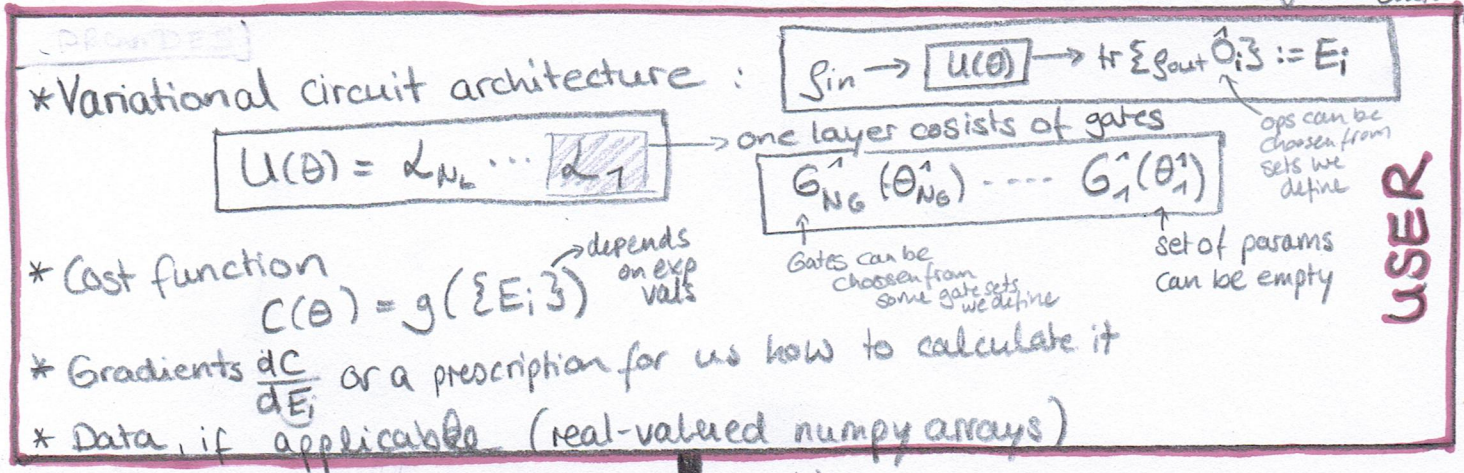 [PROVIDES]
*Variational circuit architecture :
ρin → U(θ) → tr{ρout Ôi} := Ei
ops can be
choosen from
sets we
define
U(θ) = ℒNL ... ℒ1
→ one layer cosists of gates
G^1NG (θ^1NG) ..... G^1 1(θ^1 1)
Gates can be
choosen from
some gate sets
we define
set of params
can be empty
* Cost function
C(θ) = g({Ei})
→ depends
on exp
vals
* Gradients dC/dEi or a prescription for us how to calculate it
* Data, if applicable (real-valued numpy arrays)
USER